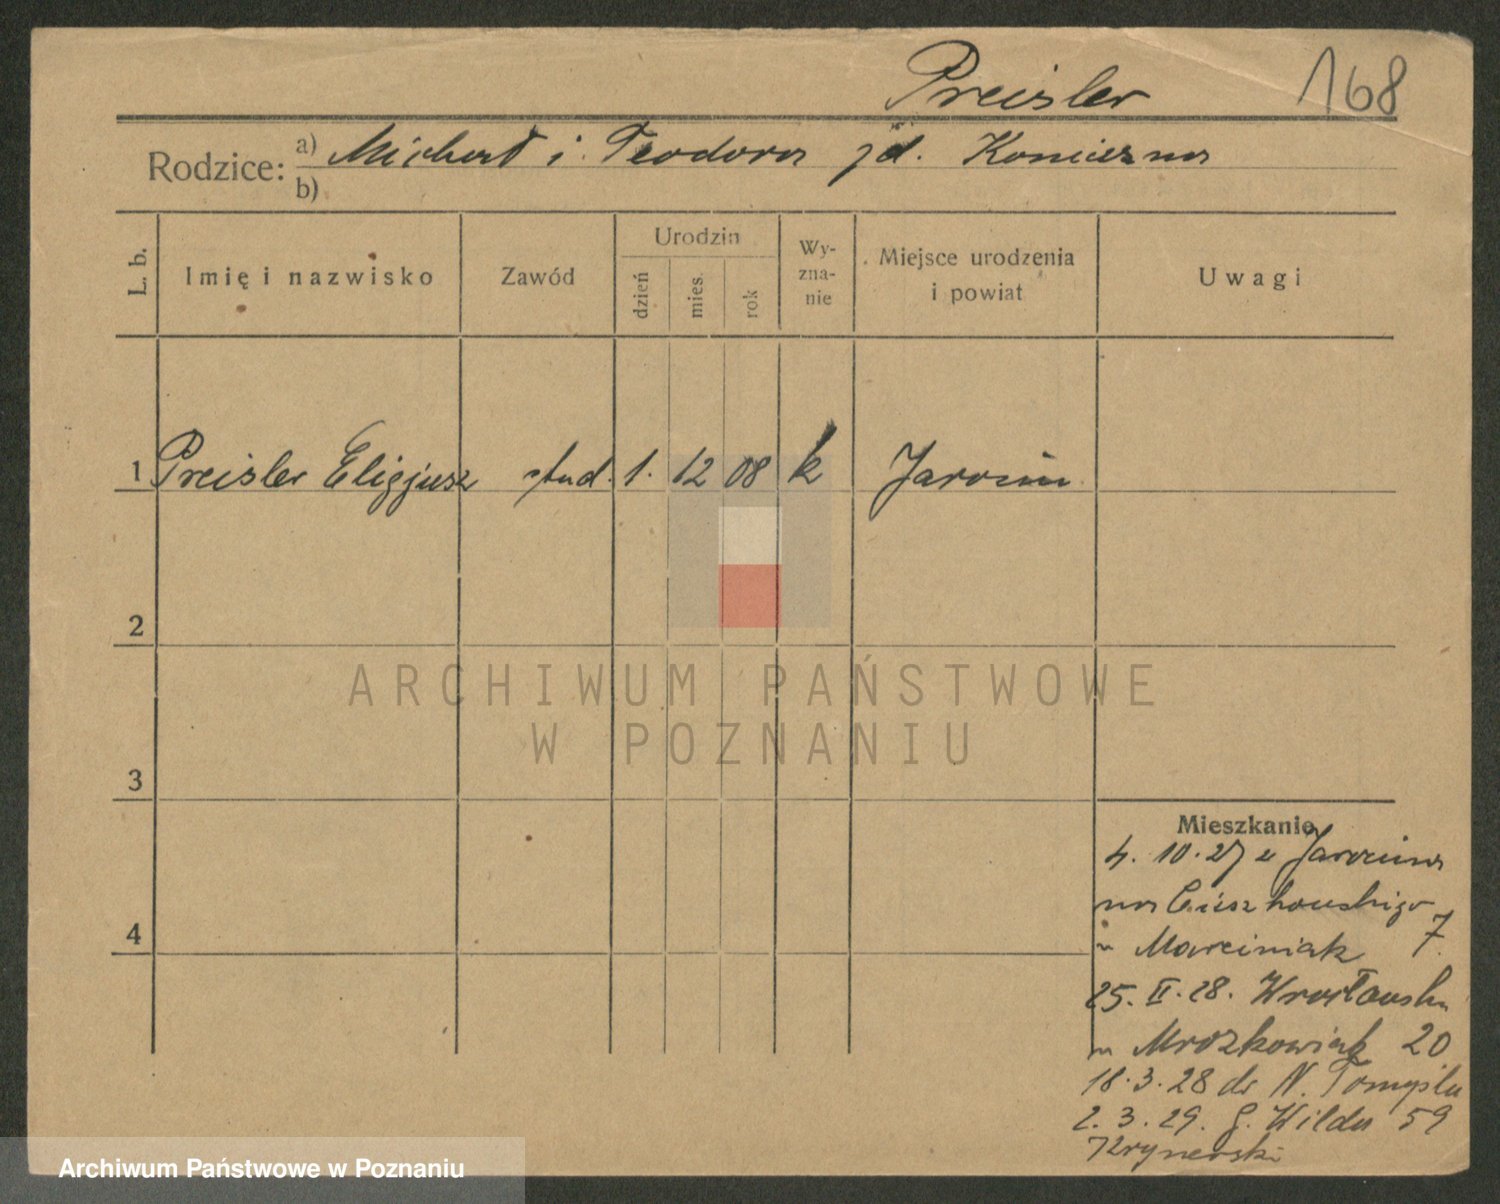 Preisler 168
Rodzice: a) Michał i Teodora zd. Konieczna
b)
L. b. Imię i nazwisko Zawód Urodzin dzień mies. rok Wy-zna-nie Miejsce urodzenia i powiat Uwagi
1 Preisler Eligjusz stud. 1. 12 08 k Jarocin
2
ARCHIWUM PAŃSTWOWE
W POZNANIU
3
Mieszkanie
4. 10. 27 z Jarocina
na Cieszkowskiego 7.
4
u Marciniak
25. II. 28. Wrocławska
u Mrozkowiak 20
18. 3. 28 do N. Tomyśla
2. 3. 29. G. Wilda 59
Krynerski
Archiwum Państwowe w Poznaniu